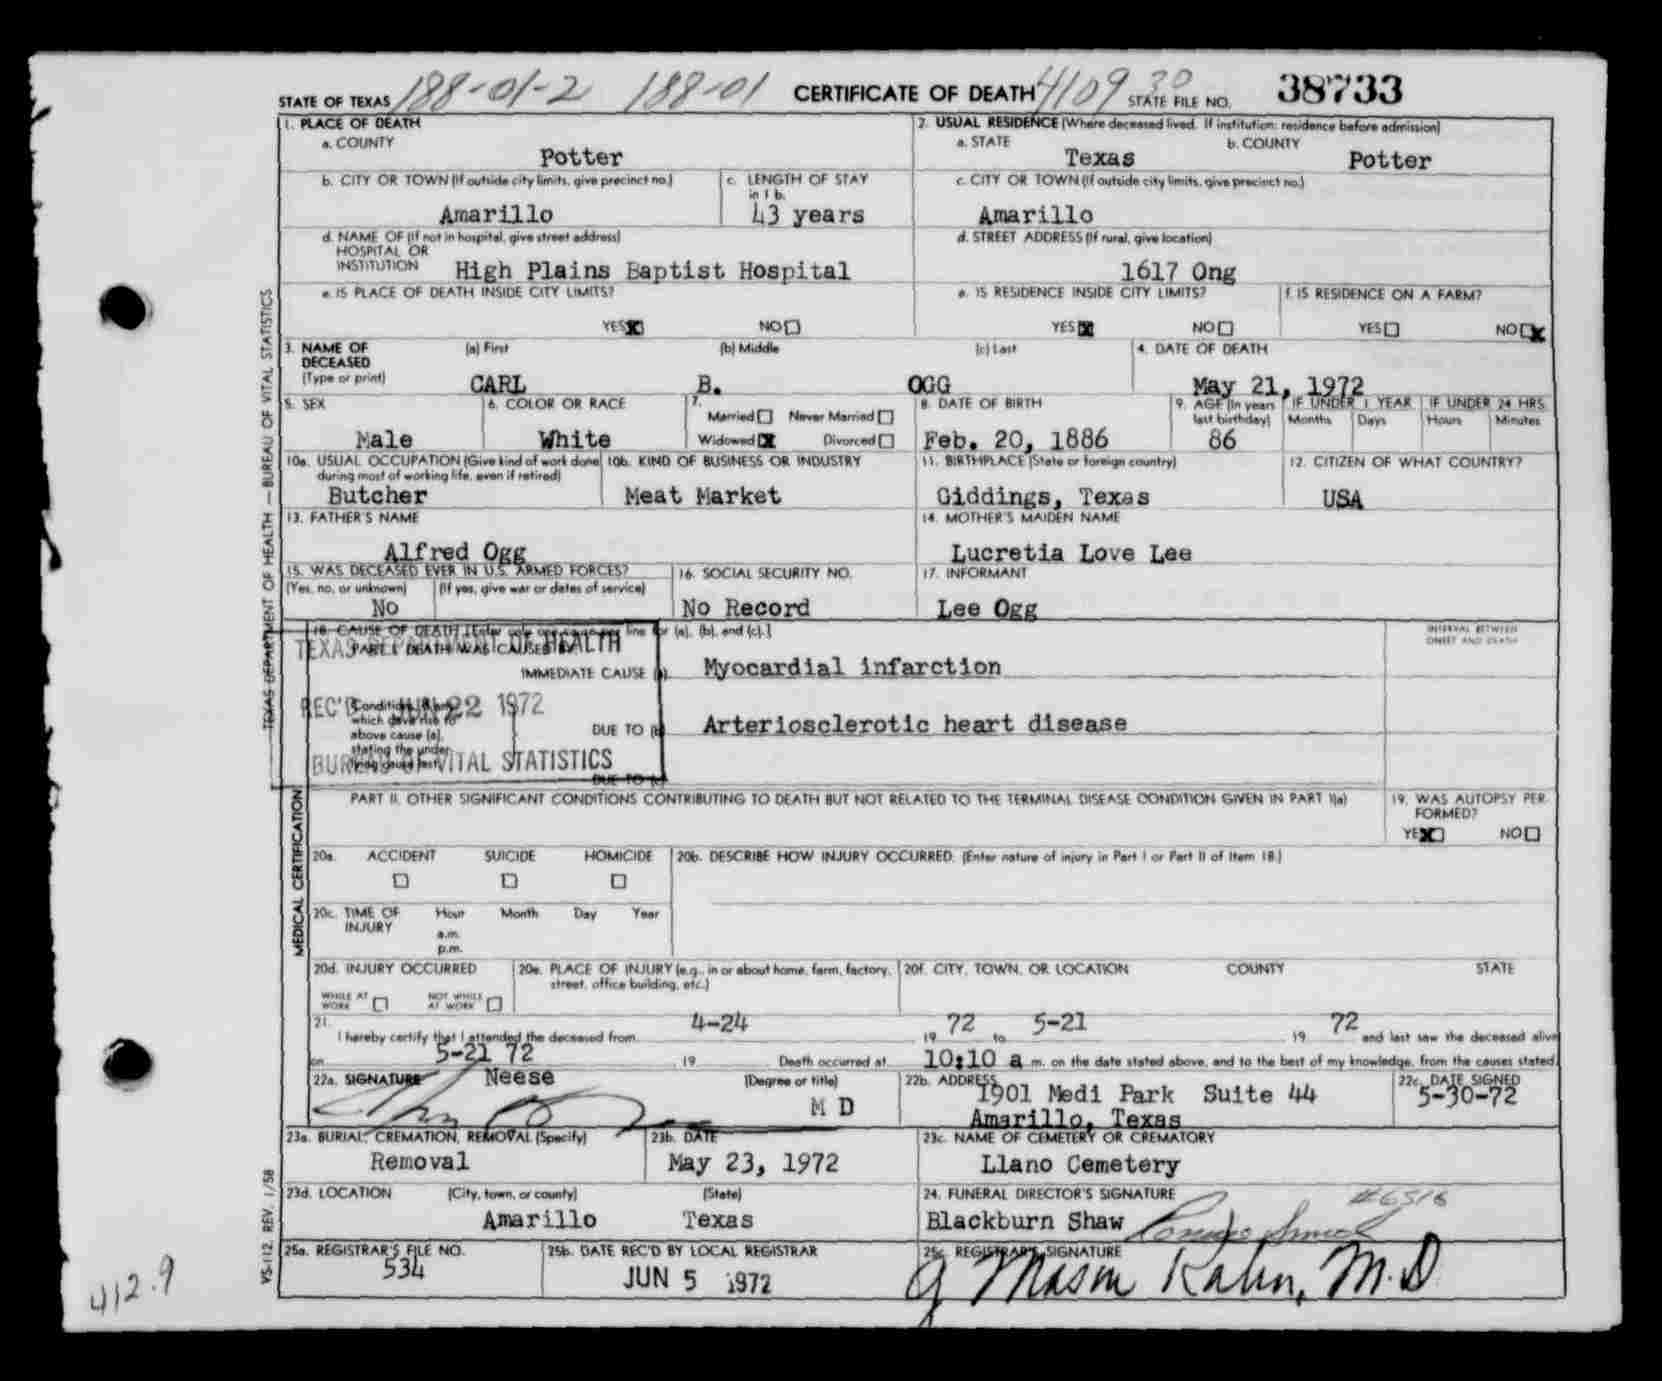 STATE OF TEXAS 188-01-2 188-01 CERTIFICATE OF DEATH 4109 30 STATE FILE NO. 38733
1. PLACE OF DEATH
a. COUNTY
Potter
2. USUAL RESIDENCE (Where deceased lived. If institution: residence before admission)
a. STATE
Texas
b. COUNTY
Potter
b. CITY OR TOWN (If outside city limits, give precinct no.)
Amarillo
c. LENGTH OF STAY
in 1 b.
43 years
c. CITY OR TOWN (If outside city limits, give precinct no.)
Amarillo
d. NAME OF (If not in hospital, give street address)
HOSPITAL OR
INSTITUTION High Plains Baptist Hospital
d. STREET ADDRESS (If rural, give location)
1617 Ong
e. IS PLACE OF DEATH INSIDE CITY LIMITS?
YES NO
e. IS RESIDENCE INSIDE CITY LIMITS?
YES NO
f. IS RESIDENCE ON A FARM?
YES NO
3. NAME OF
DECEASED
(Type or print)
(a) First (b) Middle (c) Last
CARL B. OGG
4. DATE OF DEATH
May 21, 1972
5. SEX
Male
6. COLOR OR RACE
White
7.
Married Never Married
Widowed Divorced
8. DATE OF BIRTH
Feb. 20, 1886
9. AGE (In years
last birthday)
86
IF UNDER 1 YEAR
Months Days
IF UNDER 24 HRS.
Hours Minutes
10a. USUAL OCCUPATION (Give kind of work done
during most of working life, even if retired)
Butcher
10b. KIND OF BUSINESS OR INDUSTRY
Meat Market
11. BIRTHPLACE (State or foreign country)
Giddings, Texas
12. CITIZEN OF WHAT COUNTRY?
USA
13. FATHER'S NAME
Alfred Ogg
14. MOTHER'S MAIDEN NAME
Lucretia Love Lee
15. WAS DECEASED EVER IN U.S. ARMED FORCES?
(Yes, no, or unknown) (If yes, give war or dates of service)
No
16. SOCIAL SECURITY NO.
No Record
17. INFORMANT
Lee Ogg
18. CAUSE OF DEATH [Enter only one cause per line for (a), (b), and (c).]
PART I. DEATH WAS CAUSED BY:
TEXAS DEPARTMENT OF HEALTH
IMMEDIATE CAUSE (a) Myocardial infarction
INTERVAL BETWEEN
ONSET AND DEATH
REC'D JUN 22 1972
Conditions, if any,
which gave rise to
above cause (a),
stating the under-
lying cause last.
DUE TO (b) Arteriosclerotic heart disease
BUREAU OF VITAL STATISTICS
DUE TO (c)
PART II. OTHER SIGNIFICANT CONDITIONS CONTRIBUTING TO DEATH BUT NOT RELATED TO THE TERMINAL DISEASE CONDITION GIVEN IN PART I(a)
19. WAS AUTOPSY PER-
FORMED?
YES NO
20a. ACCIDENT SUICIDE HOMICIDE
20b. DESCRIBE HOW INJURY OCCURRED. (Enter nature of injury in Part I or Part II of Item 18.)
20c. TIME OF
INJURY
Hour Month Day Year
a.m.
p.m.
20d. INJURY OCCURRED
WHILE AT
WORK
NOT WHILE
AT WORK
20e. PLACE OF INJURY (e.g., in or about home, farm, factory,
street, office building, etc.)
20f. CITY, TOWN, OR LOCATION COUNTY STATE
21.
I hereby certify that I attended the deceased from 4-24, 19 72 to 5-21, 19 72 and last saw the deceased alive
on 5-21 72, 19 Death occurred at 10:10 a m. on the date stated above, and to the best of my knowledge, from the causes stated.
22a. SIGNATURE Neese (Degree or title)
M D
22b. ADDRESS
1901 Medi Park Suite 44
Amarillo, Texas
22c. DATE SIGNED
5-30-72
23a. BURIAL, CREMATION, REMOVAL (Specify)
Removal
23b. DATE
May 23, 1972
23c. NAME OF CEMETERY OR CREMATORY
Llano Cemetery
23d. LOCATION (City, town, or county) (State)
Amarillo Texas
24. FUNERAL DIRECTOR'S SIGNATURE #6516
Blackburn Shaw
25a. REGISTRAR'S FILE NO.
534
25b. DATE REC'D BY LOCAL REGISTRAR
JUN 5 1972
25c. REGISTRAR'S SIGNATURE
J Mason Kahn, M.D
TEXAS DEPARTMENT OF HEALTH — BUREAU OF VITAL STATISTICS
MEDICAL CERTIFICATION
VS-112, REV. 1/58
412.9